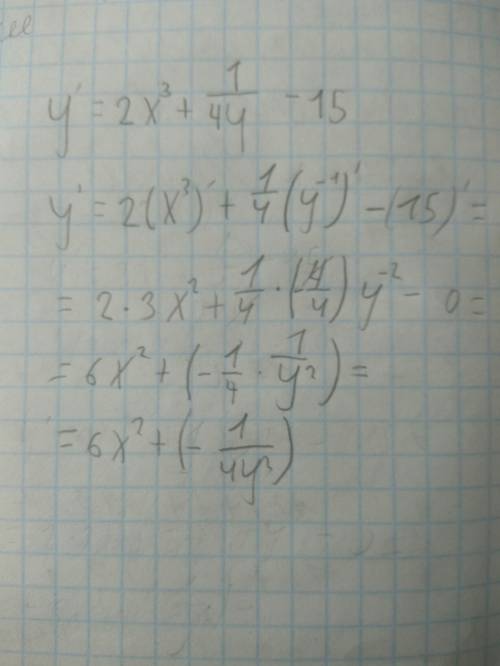 y' = 2x³ + 1/4y - 15
y' = 2(x³)' + 1/4 (y⁻¹)' - (15)' =
= 2·3x² + 1/4 · y⁻² - 0 =
= 6x² + (- 1/4 · 1/y²) =
= 6x² + (- 1/4y²)